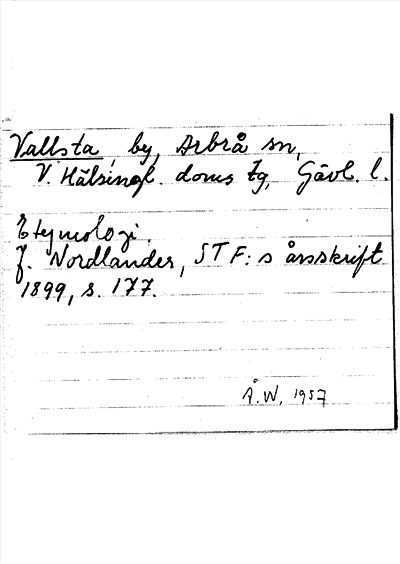 Vallsta, by, Arbrå sn,
V. Hälsingl. doms tg, Gävl. l.
Etymologi.
J. Nordlander, STF:s årsskrift
1899, s. 177.
Å.W. 1957